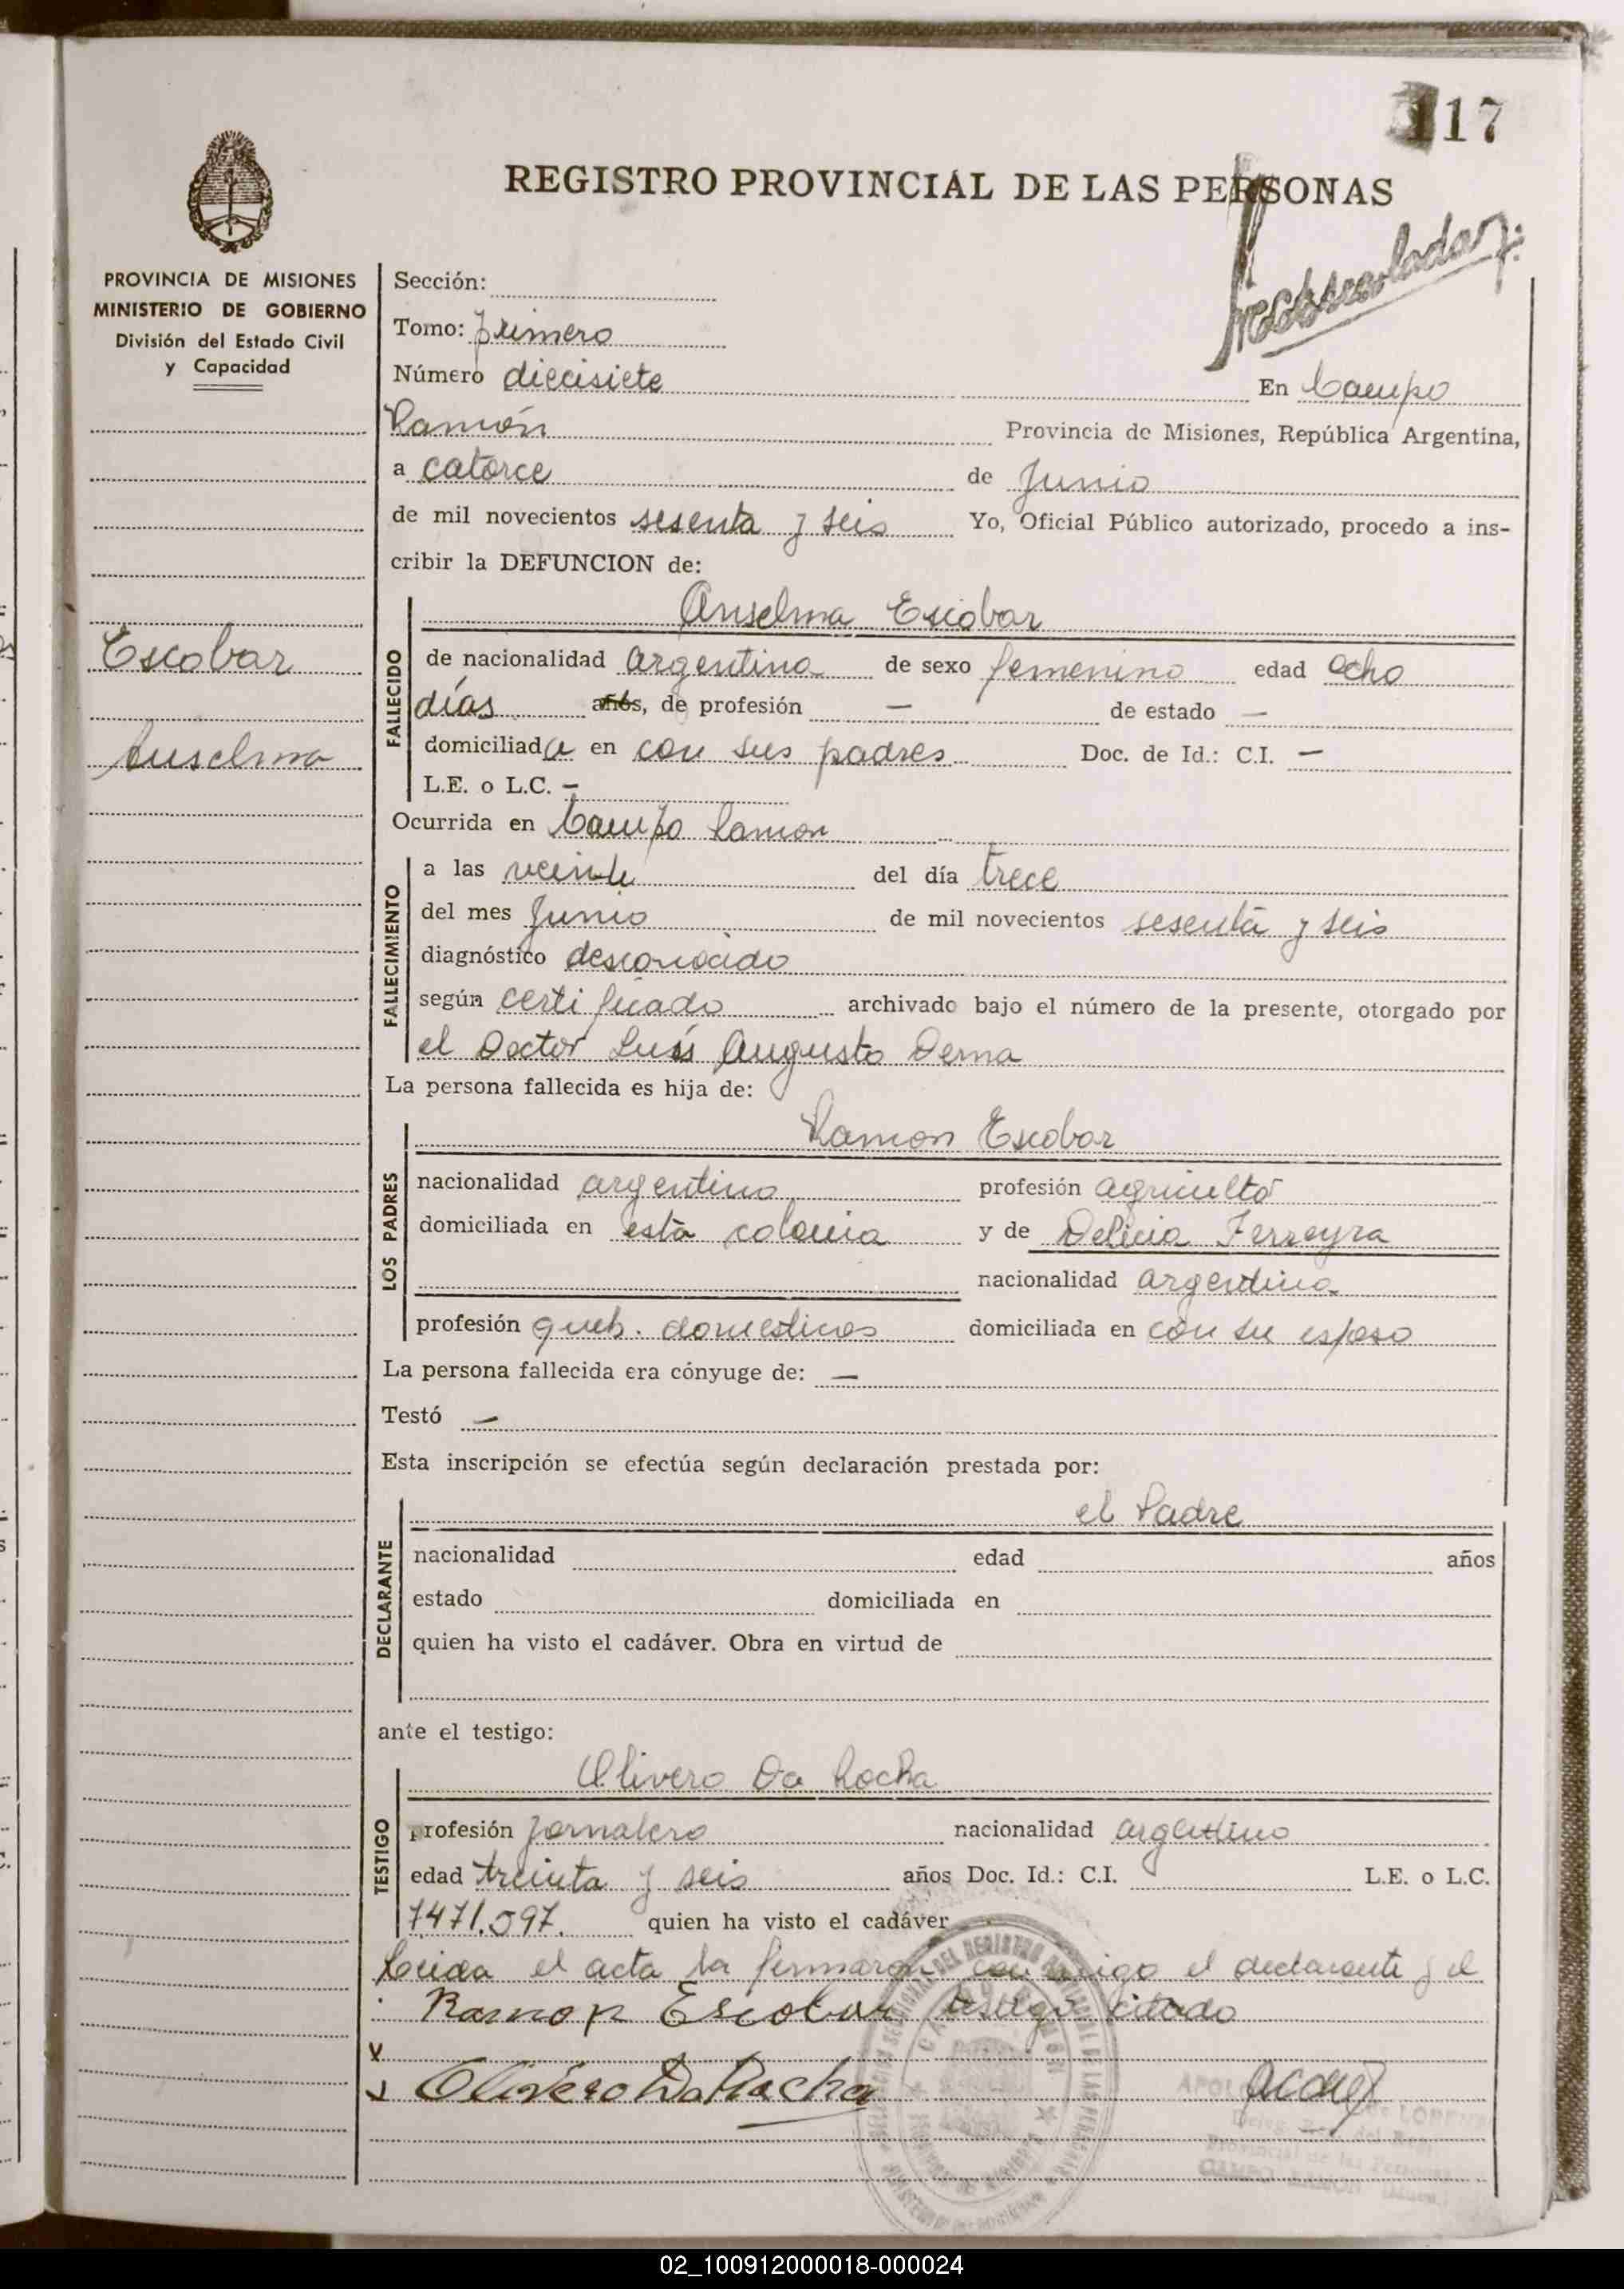 117
REGISTRO PROVINCIAL DE LAS PERSONAS
PROVINCIA DE MISIONES
MINISTERIO DE GOBIERNO
División del Estado Civil
y Capacidad
Escobar
Anselma
Sección:
Tomo: primero
Número diecisiete En Campo
Ramón Provincia de Misiones, República Argentina,
a catorce de Junio
de mil novecientos sesenta y seis Yo, Oficial Público autorizado, procedo a ins-
cribir la DEFUNCION de:
Anselma Escobar
FALLECIDO
de nacionalidad argentina de sexo femenino edad ocho
días años, de profesión — de estado —
domiciliada en con sus padres Doc. de Id.: C.I. —
L.E. o L.C. –
Ocurrida en Campo Ramon
FALLECIMIENTO
a las veinte del día trece
del mes Junio de mil novecientos sesenta y seis
diagnóstico desconocido
según certificado archivado bajo el número de la presente, otorgado por
el Doctor Luis Augusto Derna
La persona fallecida es hija de:
Ramon Escobar
LOS PADRES
nacionalidad argentino profesión agricultor
domiciliada en esta colonia y de Delicia Ferreyra
nacionalidad argentina
profesión queh. domesticos domiciliada en con su esposo
La persona fallecida era cónyuge de: —
Testó —
Esta inscripción se efectúa según declaración prestada por:
el Padre
DECLARANTE
nacionalidad edad años
estado domiciliada en
quien ha visto el cadáver. Obra en virtud de
ante el testigo:
Olivero Da Rocha
TESTIGO
profesión Jornalero nacionalidad argentino
edad treinta y seis años Doc. Id.: C.I. L.E. o L.C.
7471.597. quien ha visto el cadáver
Leida el acta la firmaron conmigo el declarante y el
Ramon Escobar testigo citado
Olivero Da Rocha
CAMPO RAMON
02_100912000018-000024